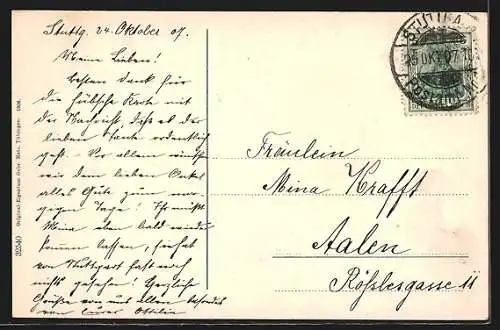 Stuttg. 24. Oktober 07.
Meine Lieben!
Besten Dank für
die hübsche Karte mit
der Nachricht, daß es der
lieben Tante ordentlich
geht. Vor allem wünschen
wir dem lieben Onkel
alles Gute zum
gegen Tage!
Mina eben bald wieder
kommen lassen, sie hat
von Stuttgart fast noch
nichts gesehen! Herzliche
Grüße von uns allen besonders
von Eurer Ottilie
Fräulein
Mina Krafft
Aalen
Rösslesgasse 11
STUTTGART
25 OKT 07
32540 Original-Eigentum Gebr. Metz, Tübingen. 1906.